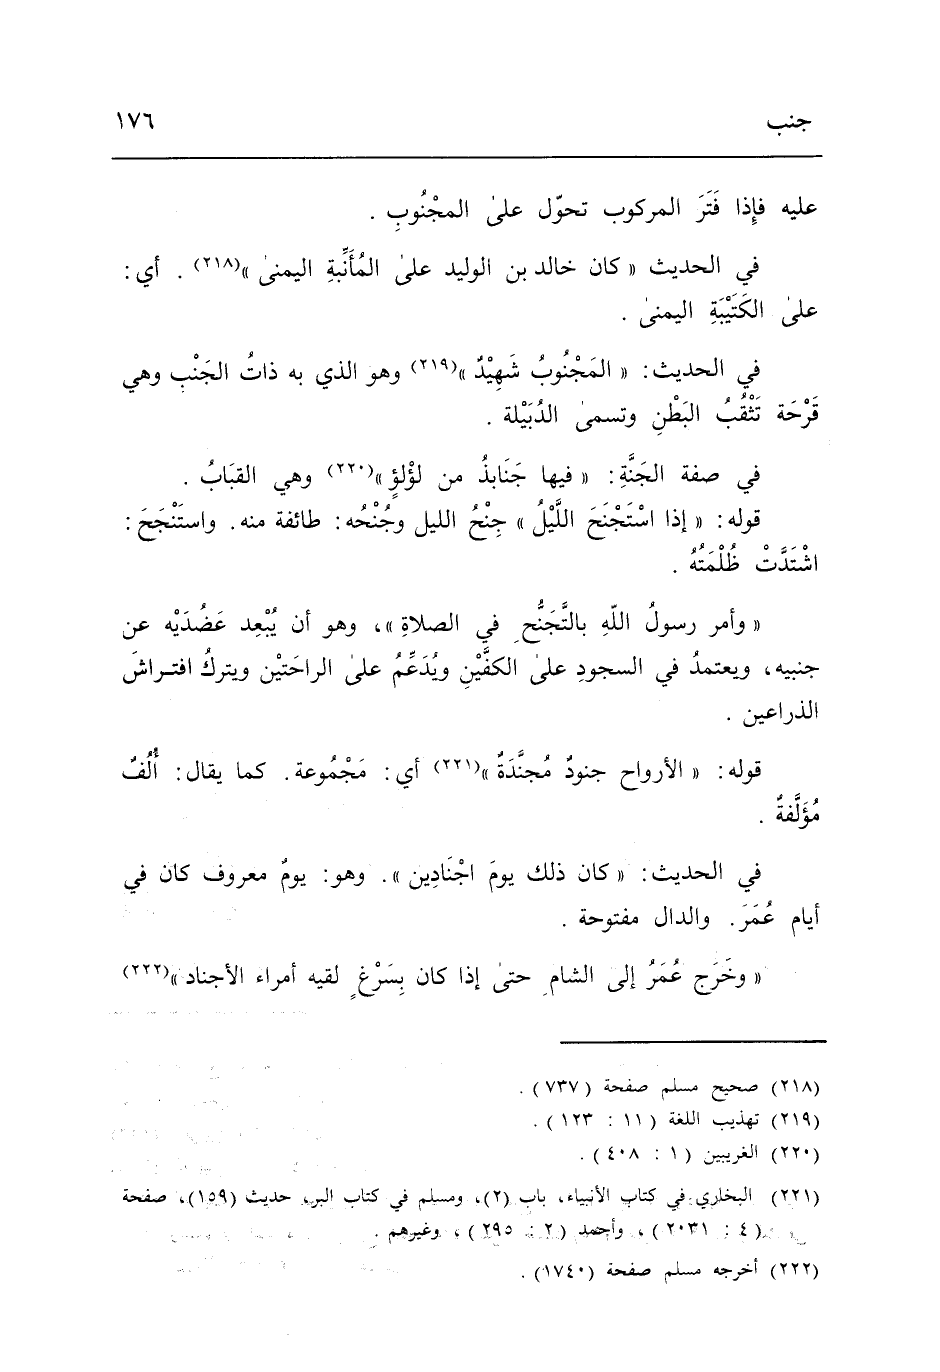 جنب ١٧٦
عليه فإِذا فَتَرَ المركوب تحوّل علىٰ المجْنُوبِ .
في الحديث « كان خالد بن الوليد علىٰ المُأَنِّبةِ اليمنىٰ »(٢١٨) . أي :
علىٰ الكَتَيْبَةِ اليمنىٰ .
في الحديث : « المَجْنُوبُ شَهِيْدٌ »(٢١٩) وهو الذي به ذاتُ الجَنْبِ وهي
قَرْحَة تَثْقُبُ البَطْنِ وتسمىٰ الدُبَيْلة .
في صفة الجَنَّةِ : « فيها جَنَابذُ من لؤْلؤٍ »(٢٢٠) وهي القبَابُ .
قوله : « إذا اسْتَجْنَحَ اللَّيْلُ » جِنْحُ الليل وجُنْحُه : طائفة منه . واستَنْجَحَ :
اشْتَدَّتْ ظُلْمَتُهُ .
« وأمر رسولُ اللّهِ بالتَّجَنُّحِ في الصلاةِ » ، وهو أن يُبْعِد عَضُدَيْه عن
جنبيه ، ويعتمدُ في السجودِ علىٰ الكفَّيْنِ ويُدَعِّمُ علىٰ الراحَتيْن ويتركُ افتـراشَ
الذراعين .
قوله : « الأرواح جنودٌ مُجنَّدَةٌ »(٢٢١) أي : مَجْمُوعة . كما يقال : أُلُفٌ
مُؤَلَّفةٌ .
في الحديث : « كان ذلك يومَ اجْنَادِين » . وهو : يومٌ معروف كان في
أيام عُمَرَ . والدال مفتوحة .
« وخَرَج عُمَرُ إلى الشامِ حتىٰ إذا كان بِسَرْغٍ لقيه أمراء الأجناد »(٢٢٢)
(٢١٨) صحيح مسلم صفحة ( ٧٣٧ ) .
(٢١٩) تهذيب اللغة ( ١١ : ١٢٣ ) .
(٢٢٠) الغريبين ( ١ : ٤٠٨ ) .
(٢٢١) البخاري في كتاب الأنبياء ، باب (٢) ، ومسلم في كتاب البر ، حديث (١٥٩) ، صفحة
( ٤ : ٢٠٣١ ) ، وأحمد ( ٢ : ٢٩٥ ) ، وغيرهم .
(٢٢٢) أخرجه مسلم صفحة (١٧٤٠) .